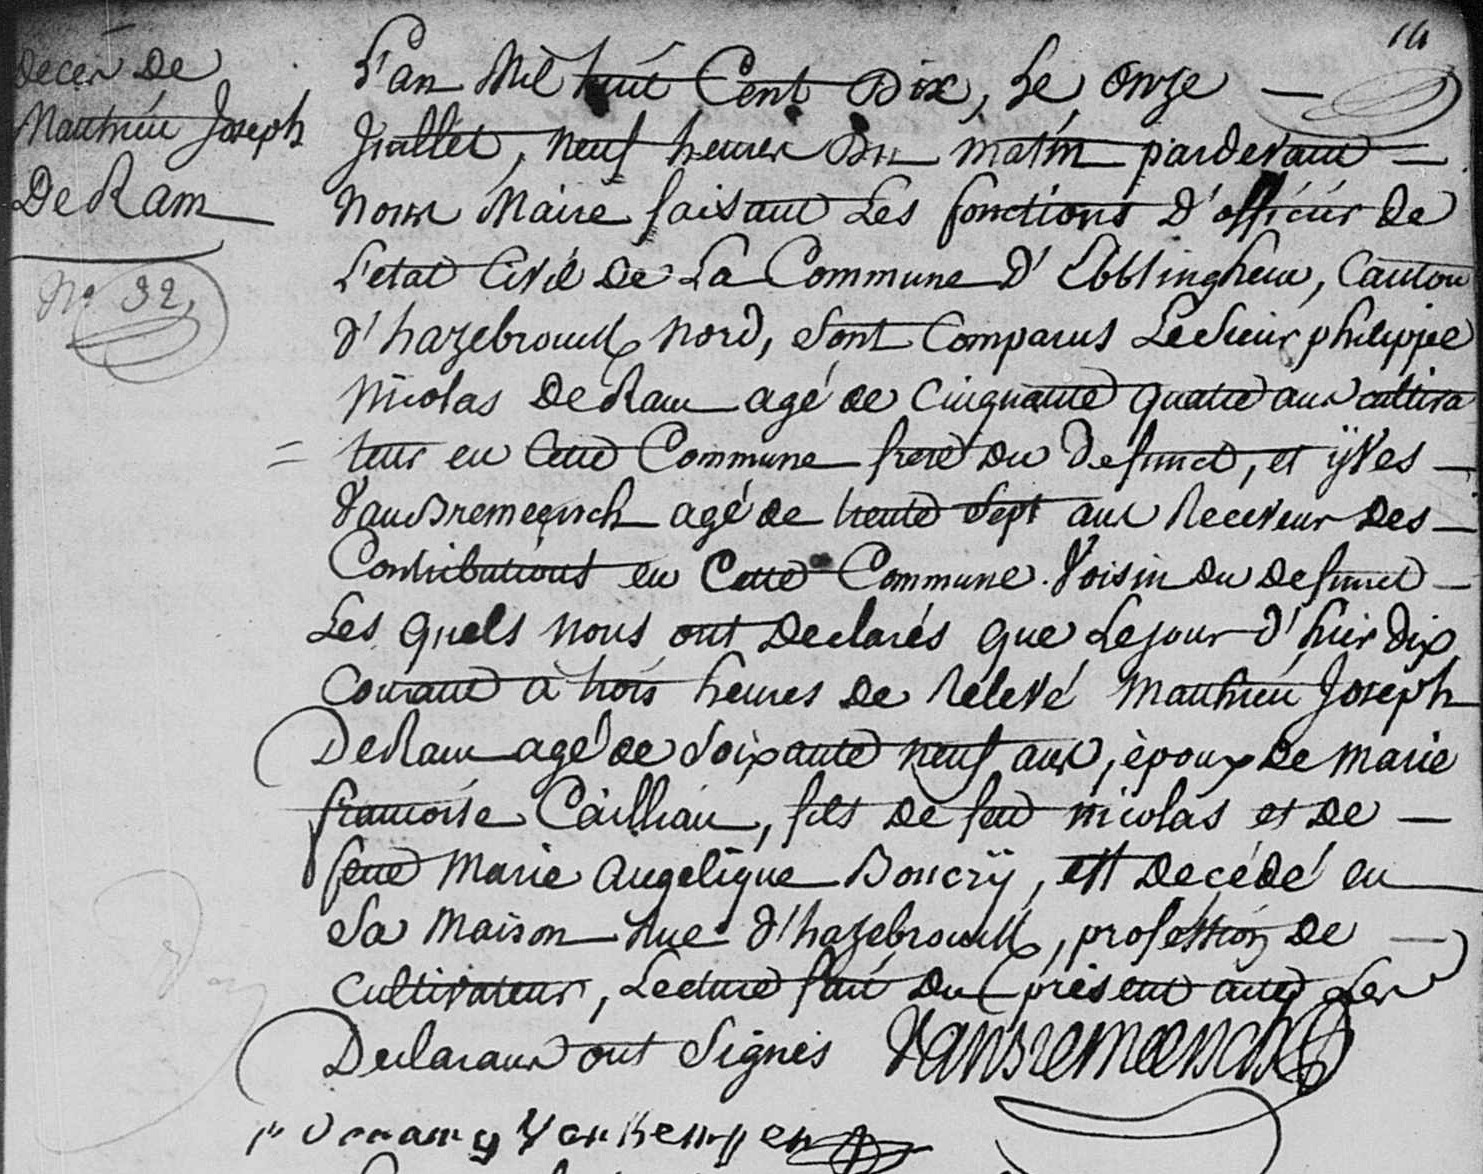 14
deces de
Mathieu Joseph
De Ram
No 32,
L'an Mil huit Cent Dix, Le onze
Juillet, neuf heures Du matin pardevant
nous Maire faisant Les fonctions D'officier de
L'etat Civil De La Commune D'Ebblinghem, Canton
d'hazebrouck Nord, Sont Comparus Le Sieur philippe
Nicolas De Ram agé de Cinquante quatre ans cultiva
= teur en Cette Commune frere du Defunct, et ÿves
VanBremeersch agé de trente Sept ans Receveur Des
Contributions en Cette Commune. Voisin du defunct
Les quels nous ont Declarés que Le jour d'hier dix
Courant à trois heures de relevé Mathieu Joseph
De Ram agé de Soixante neuf ans, époux de Marie
francoise Cailliau, fils de feu nicolas et de
feue Marie Angelique Boucrÿ, est Decédé en
Sa Maison Rue d'hazebrouck, profession de
Cultivateur, Lecture fait Du présent acte Les
Declarans ont Signés